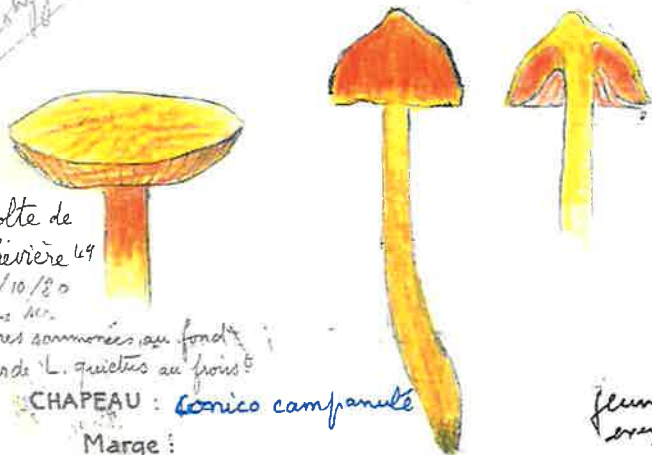 olte de
évière 49
/10/80
res saumonées au fond
de L. quietus au froiss<sup>t</sup>
CHAPEAU : conico campanulé
Marge :
jeun
exem